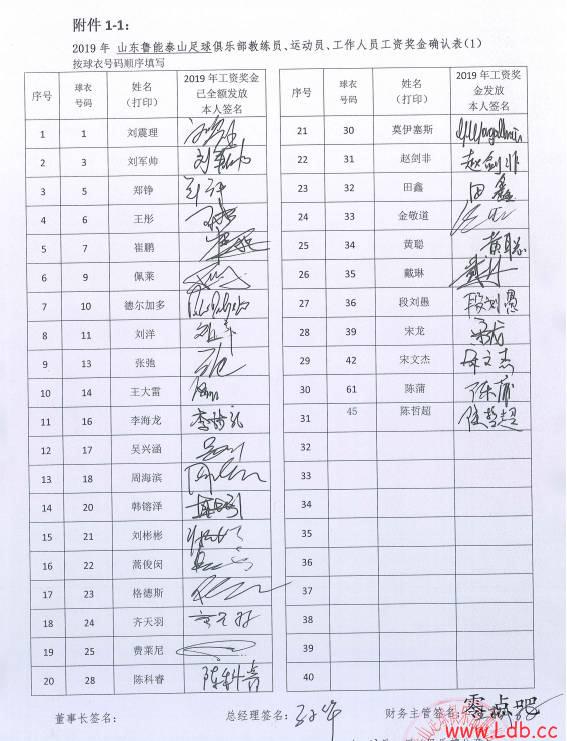 附件 1-1:
2019 年 山东鲁能泰山足球俱乐部教练员、运动员、工作人员工资奖金确认表(1)
按球衣号码顺序填写
序号 球衣号码 姓名（打印） 2019 年工资奖金已全额发放本人签名
1 1 刘震理
2 3 刘军帅 刘军帅
3 5 郑铮
4 6 王彤
5 7 崔鹏
6 9 佩莱
7 10 德尔加多
8 11 刘洋
9 13 张弛
10 14 王大雷
11 16 李海龙
12 17 吴兴涵
13 18 周海滨
14 20 韩镕泽
15 21 刘彬彬
16 22 蒿俊闵
17 23 格德斯
18 24 齐天羽
19 25 费莱尼
20 28 陈科睿
序号 球衣号码 姓名（打印） 2019 年工资奖金发放本人签名
21 30 莫伊塞斯
22 31 赵剑非 赵剑非
23 32 田鑫 田鑫
24 33 金敬道
25 34 黄聪 黄聪
26 35 戴琳
27 36 段刘愚 段刘愚
28 39 宋龙
29 42 宋文杰 宋文杰
30 61 陈蒲 陈蒲
31 45 陈哲超 陈哲超
32
33
34
35
36
37
38
39
40
董事长签名： 总经理签名： 财务主管签名：
零点吧
www.Ldb.cc